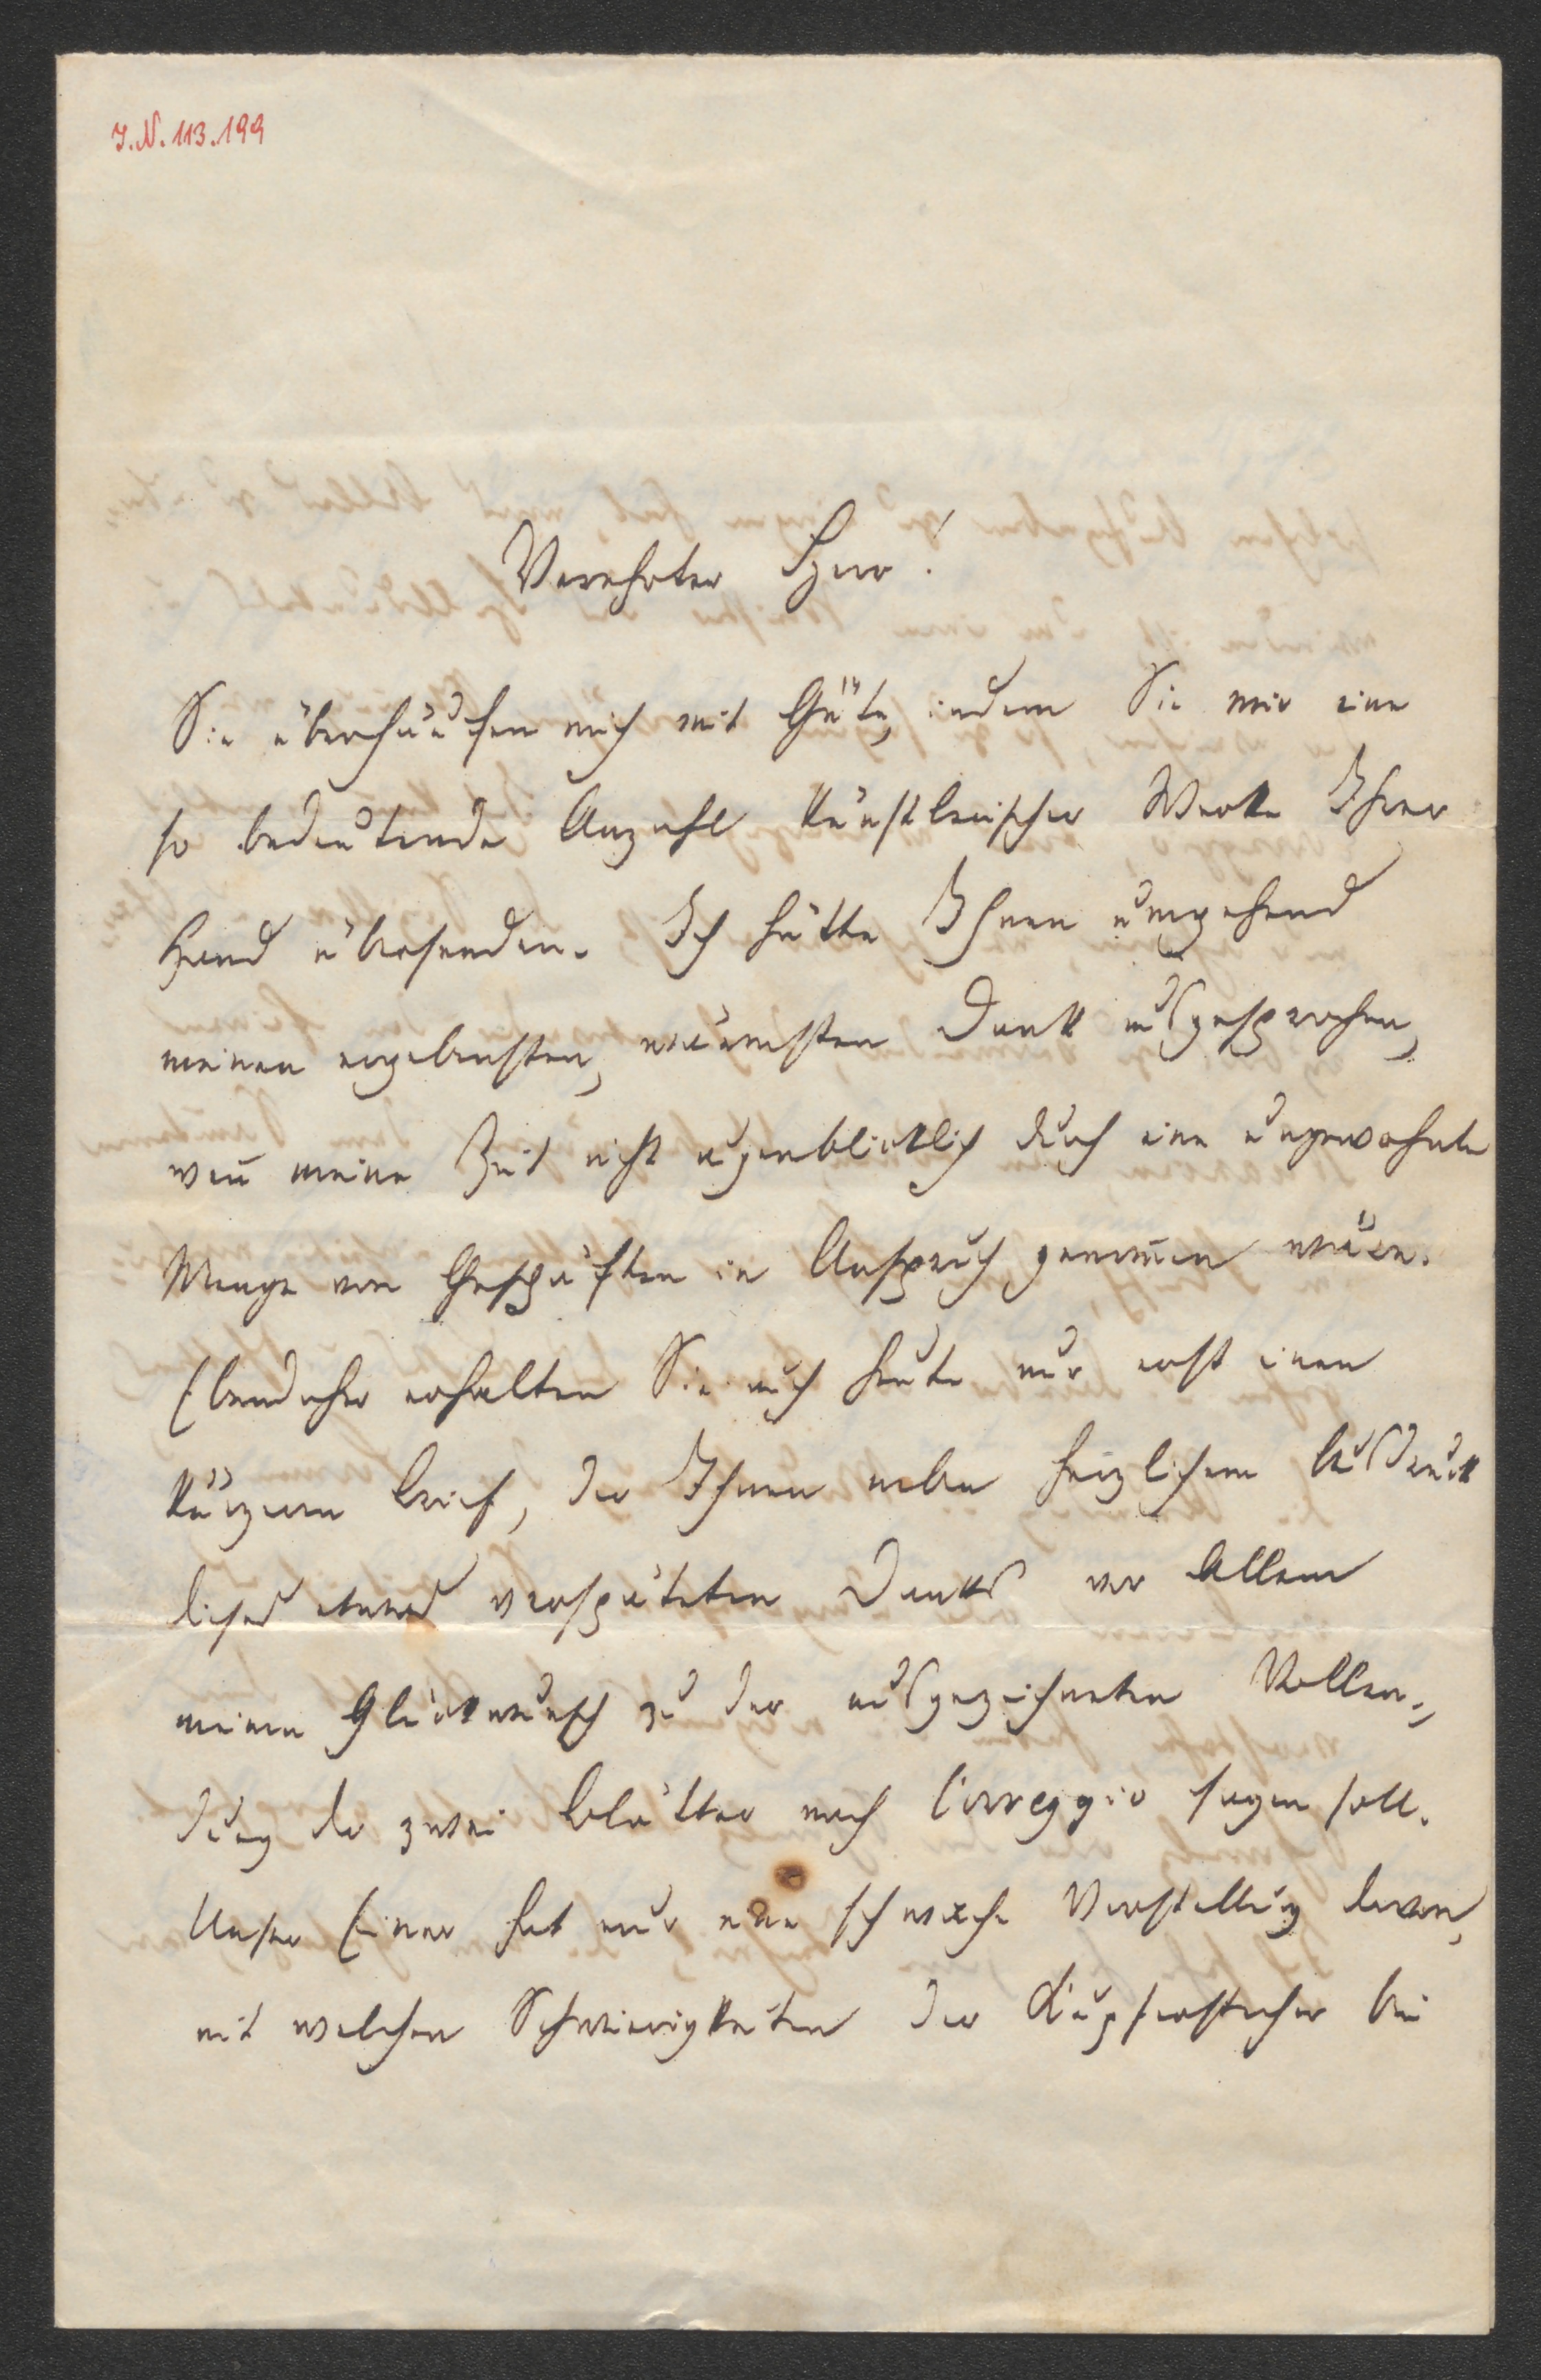 J.N. 113.199
Verehrter Herr!
Sie überhäufen mich mit Güte, indem Sie mir eine
so bedeutende Anzahl künstlerischer Werke Ihrer
Hand übersenden. Ich hätte Ihnen umgehend
meinen ergebensten, wärmsten Dank ausgesprochen,
wen̅ meine Zeit nicht augenblicklich durch eine ungewohnte
Menge von Geschäften in Anspruch genom̅en wäre.
Ebendaher erhalten Sie auch heute nur erst einen
kürzern Brief, der Ihnen neben herzlichem Ausdruck
dieses etwas verspäteten Danks vor Allem
meinen Glückwunsch zu der ausgezeichneten Vollen-
dung der zwei Blätter nach Correggio sagen soll.
Unser Einer hat nur eine schwache Vorstellung davon,
mit welchen Schwierigkeiten der Kupferstecher bei